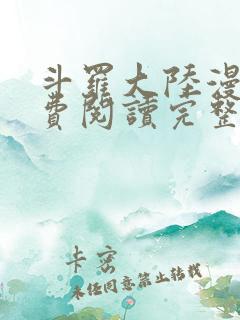 斗羅大陸漫
費閱讀完整
卡密
未经同意禁止转载